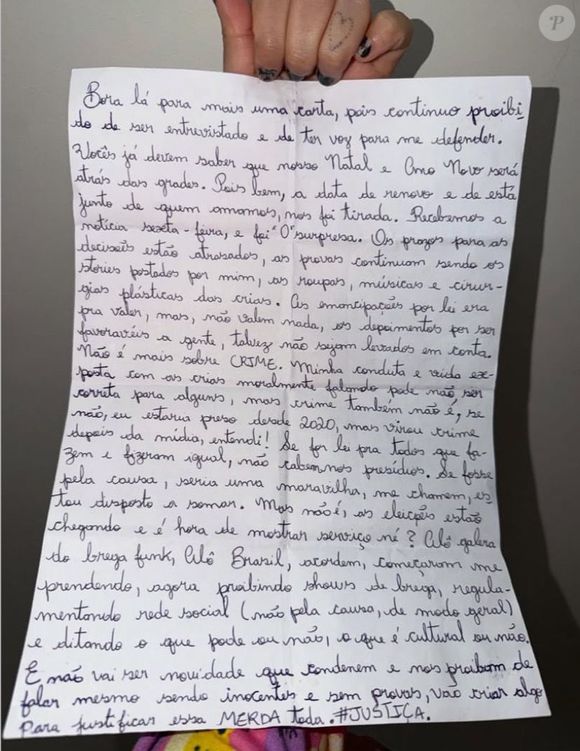 Bora lá para mais uma carta, pois continuo proibi
do de ser entrevistado e de ter voz para me defender.
Vocês já devem saber que nosso Natal e Ano Novo será
atrás das grades. Pois bem, a data de renovo e de está
junto de quem amamos, nos foi tirada. Recebemos a
notícia sexta-feira, e foi "0" surpresa. Os prazos para as
decisões estão atrasados, as provas continuam sendo os
stories postados por mim, as roupas, músicas e cirur-
gias plásticas das crias. As emancipações por lei era
pra valer, mas, não valem nada, os depoimentos por ser
favoravéis a gente, talvez não sejam levados em conta.
Não é mais sobre CRIME. Minha conduta e vida ex-
posta com as crias moralmente falando pode não ser
correta para alguns, mas crime também não é, se
não, eu estaria preso desde 2020, mas virou crime
depois da mídia, entendi! Se for lei pra todos que fa-
zem e fizeram igual, não cabem nos presídios. Se fosse
pela causa, seria uma maravilha, me chamem, es
tou disposto a somar. Mas não é, as eleições estão
chegando e é hora de mostrar serviço né? Alô galera
do brega funk, Alô Brasil, acordem, começaram me
prendendo, agora proibindo shows de brega, regula-
mentando rede social (não pela causa, de modo geral)
e ditando o que pode ou não, o que é cultural ou não.
E não vai ser novidade que condenem e nos proibam de
falar mesmo sendo inocentes e sem provas, vão criar algo
para justificar essa MERDA toda. #JUSTIÇA.
P